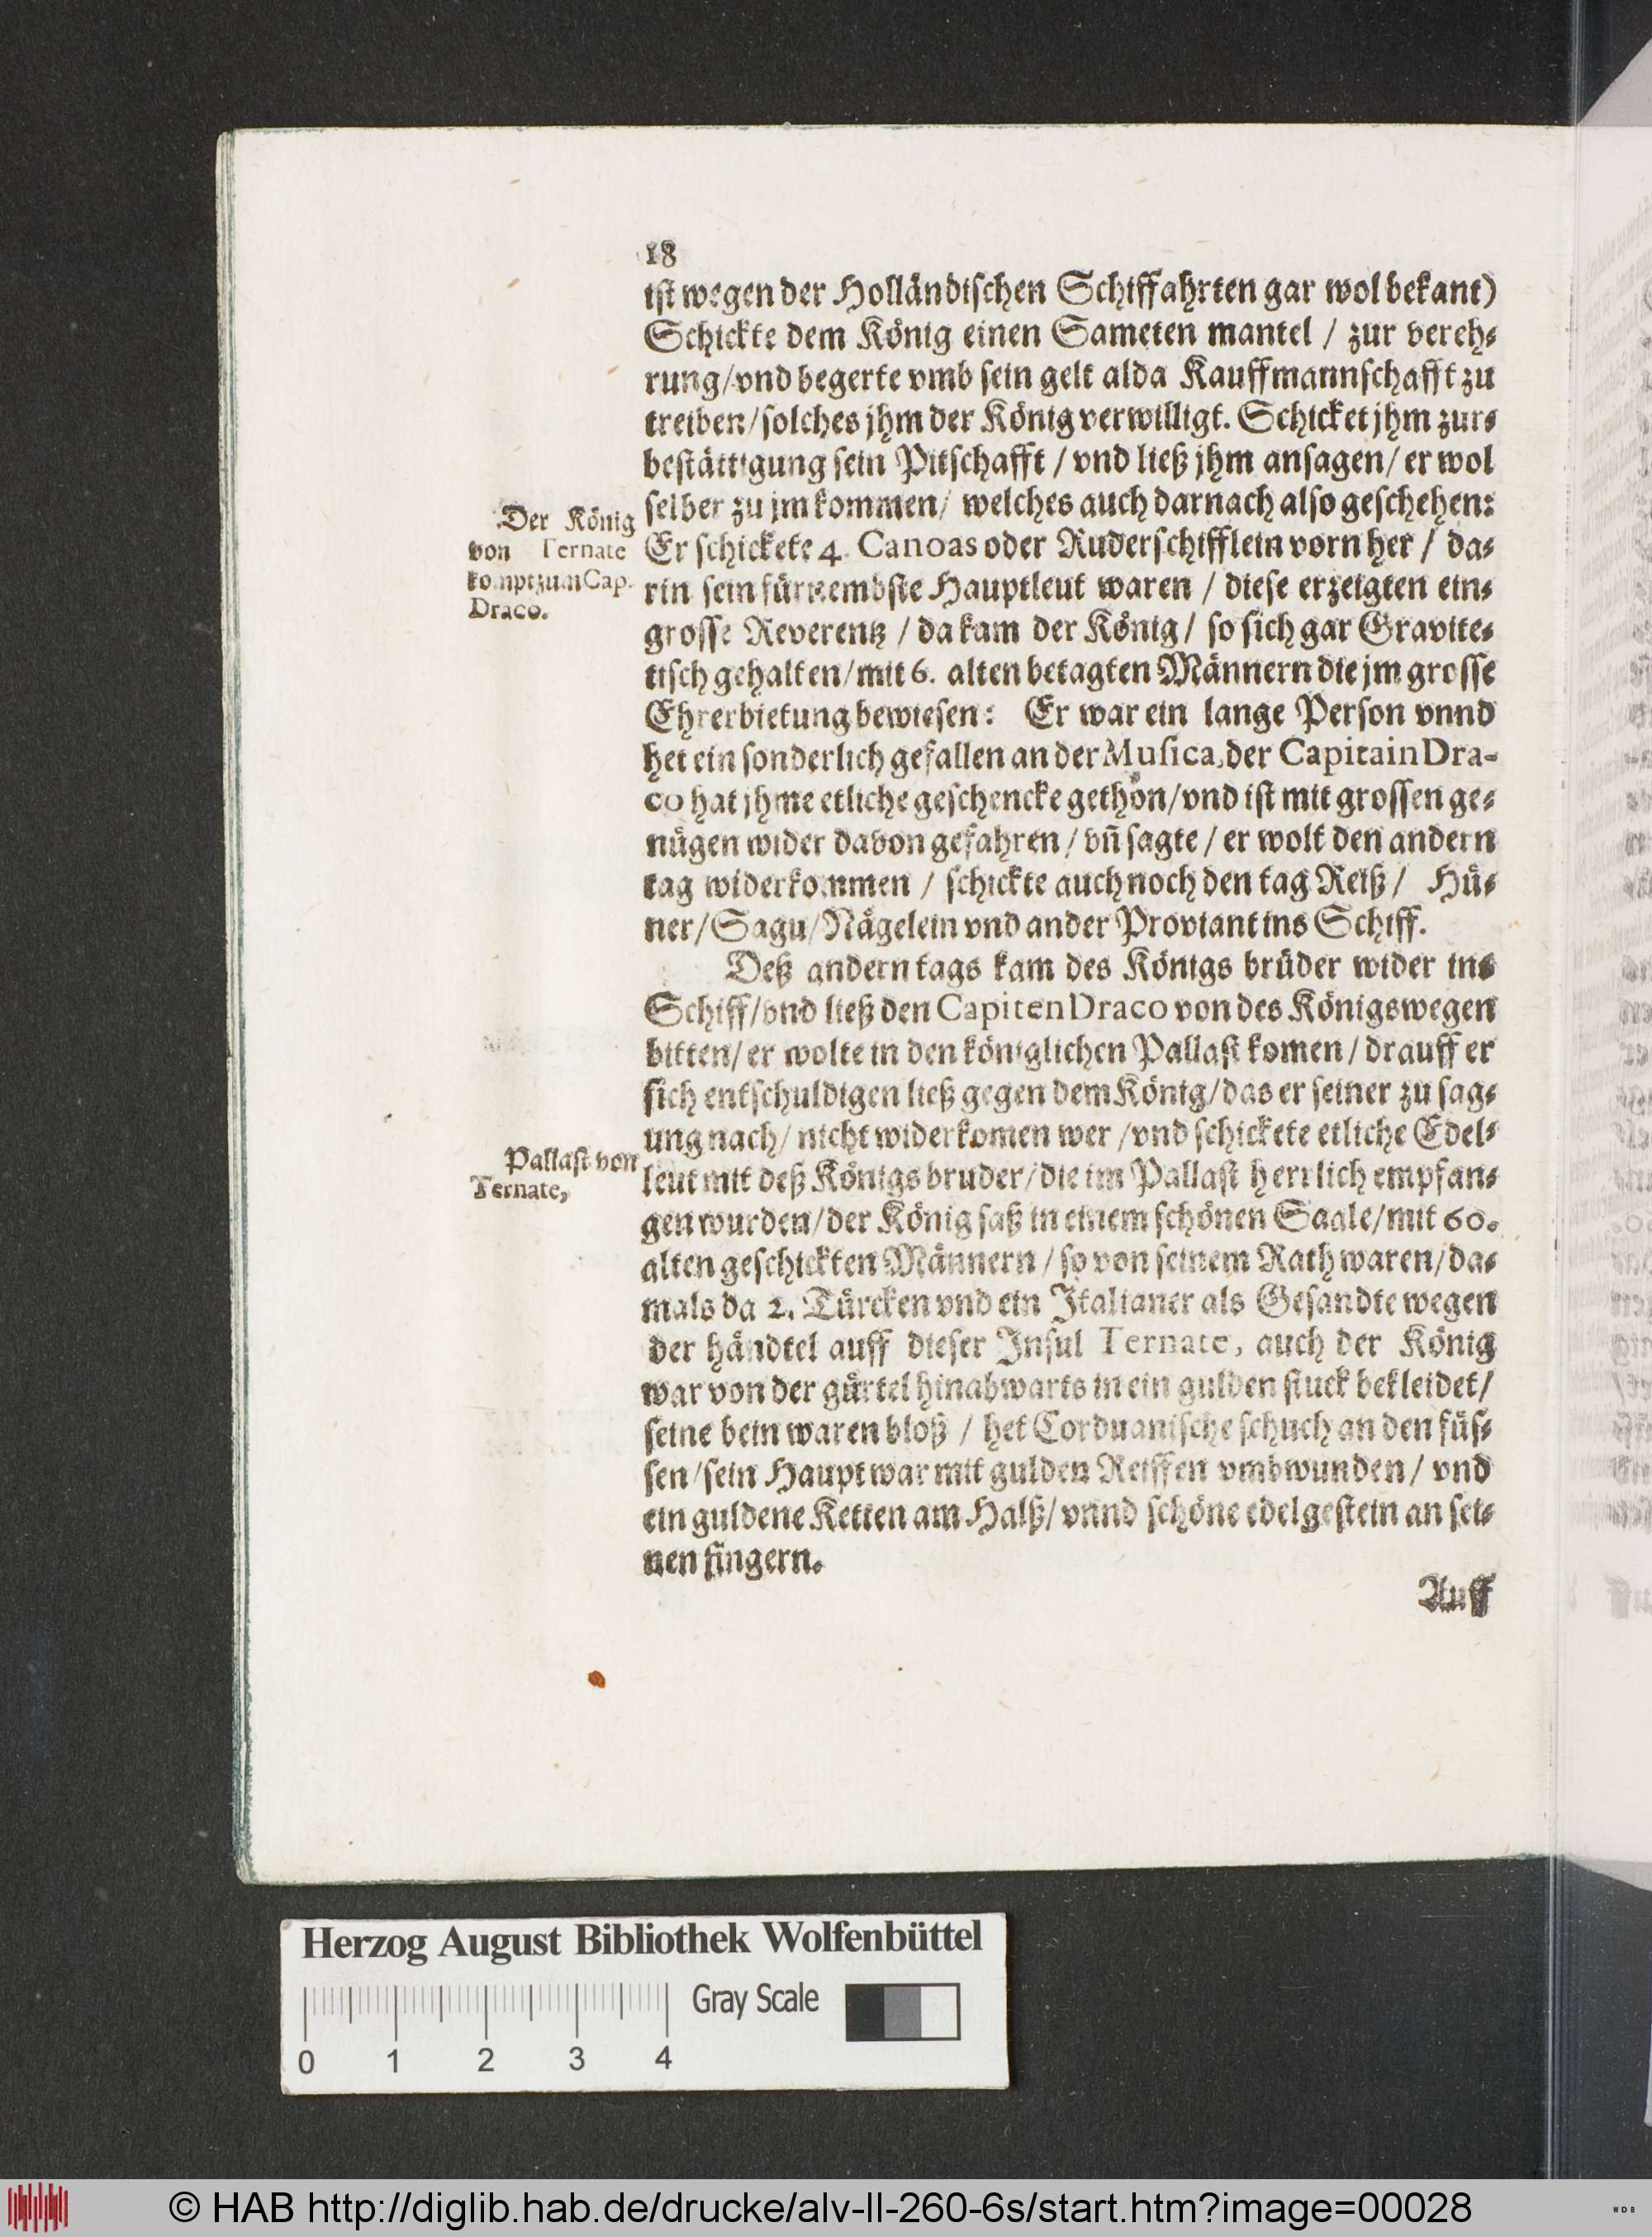 18
ist wegen der Holländischen Schiffahrten gar wol bekant)
Schickte dem König einen Sameten mantel / zur vereh⸗
rung/vnd begerte vmb sein gelt alda Kauffmannschafft zu
treiben/solches jhm der König verwilligt. Schicket jhm zur⸗
bestättigung sein Pitschafft / vnd ließ jhm ansagen/ er wol
selber zu jm kommen/ welches auch darnach also geschehen:
Der König
von Ternate
kompt zum Cap.
Draco.
Er schickete 4. Canoas oder Ruderschifflein vorn her / da⸗
rin sein fürnembste Hauptleut waren / diese erzeigten ein⸗
grosse Reverentz / da kam der König / so sich gar Gravite⸗
tisch gehalten/mit 6. alten betagten Männern die jm grosse
Ehrerbietung bewiesen: Er war ein lange Person vnnd
het ein sonderlich gefallen an der Musica, der Capitain Dra-
co hat jhme etliche geschencke gethon/vnd ist mit grossen ge⸗
nügen wider davon gefahren / vñ sagte / er wolt den andern
tag widerkommen / schickte auch noch den tag Reiß / Hü⸗
ner/Sagu/Nägelein vnd ander Proviant ins Schiff.
Deß andern tags kam des Königs brüder wider ins
Schiff/vnd ließ den Capiten Draco von des Königs wegen
bitten/ er wolte in den königlichen Pallast komen / drauff er
sich entschuldigen ließ gegen dem König/das er seiner zu sag⸗
ung nach/ nicht widerkomen wer /vnd schickete etliche Edel⸗
Pallast von
Ternate,
leut mit deß Königs bruder/die im Pallast herrlich empfan⸗
gen wurden/der König saß in einem schönen Saale/mit 60.
alten geschickten Männern / so von seinem Rath waren/da⸗
mals da 2. Türcken vnd ein Italianer als Gesandte wegen
der händtel auff dieser Insul Ternate, auch der König
war von der gürtel hinabwarts in ein gulden stuck bekleidet/
seine bein waren bloß / het Corduanische schuch an den füs⸗
sen/sein Haupt war mit gulden Reiffen vmbwunden/ vnd
ein guldene Ketten am Halß/ vnnd schöne edelgestein an sei⸗
nen fingern.
Auff
Herzog August Bibliothek Wolfenbüttel
Gray Scale
0 1 2 3 4
© HAB http://diglib.hab.de/drucke/alv-II-260-6s/start.htm?image=00028
WDB